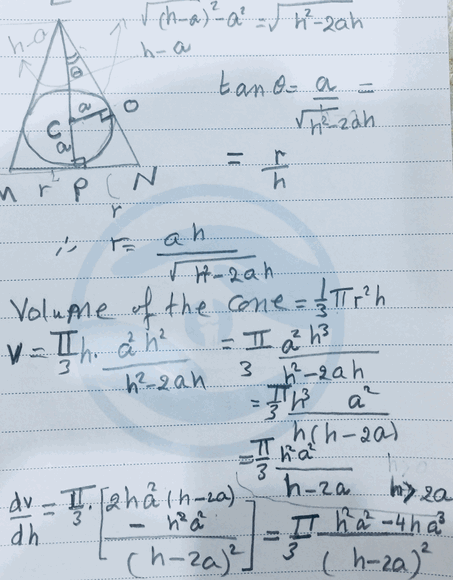 √(h-a)²-a² = √h²-2ah
h-a
h-a
θ
a
O
C
a
M r P r N
tan θ = a/√h²-2ah =
= r/h
∴ r = ah/√h²-2ah
Volume of the cone = 1/3 π r² h
V = π/3 h. a²h²/h²-2ah = π/3 a²h³/h²-2ah
= π/3 h³ a²/h(h-2a)
= π/3 h²a²/h-2a h>2a
dv/dh = π/3 . [2ha²(h-2a) - h²a²/(h-2a)²] = π/3 h²a²-4ha³/(h-2a)²